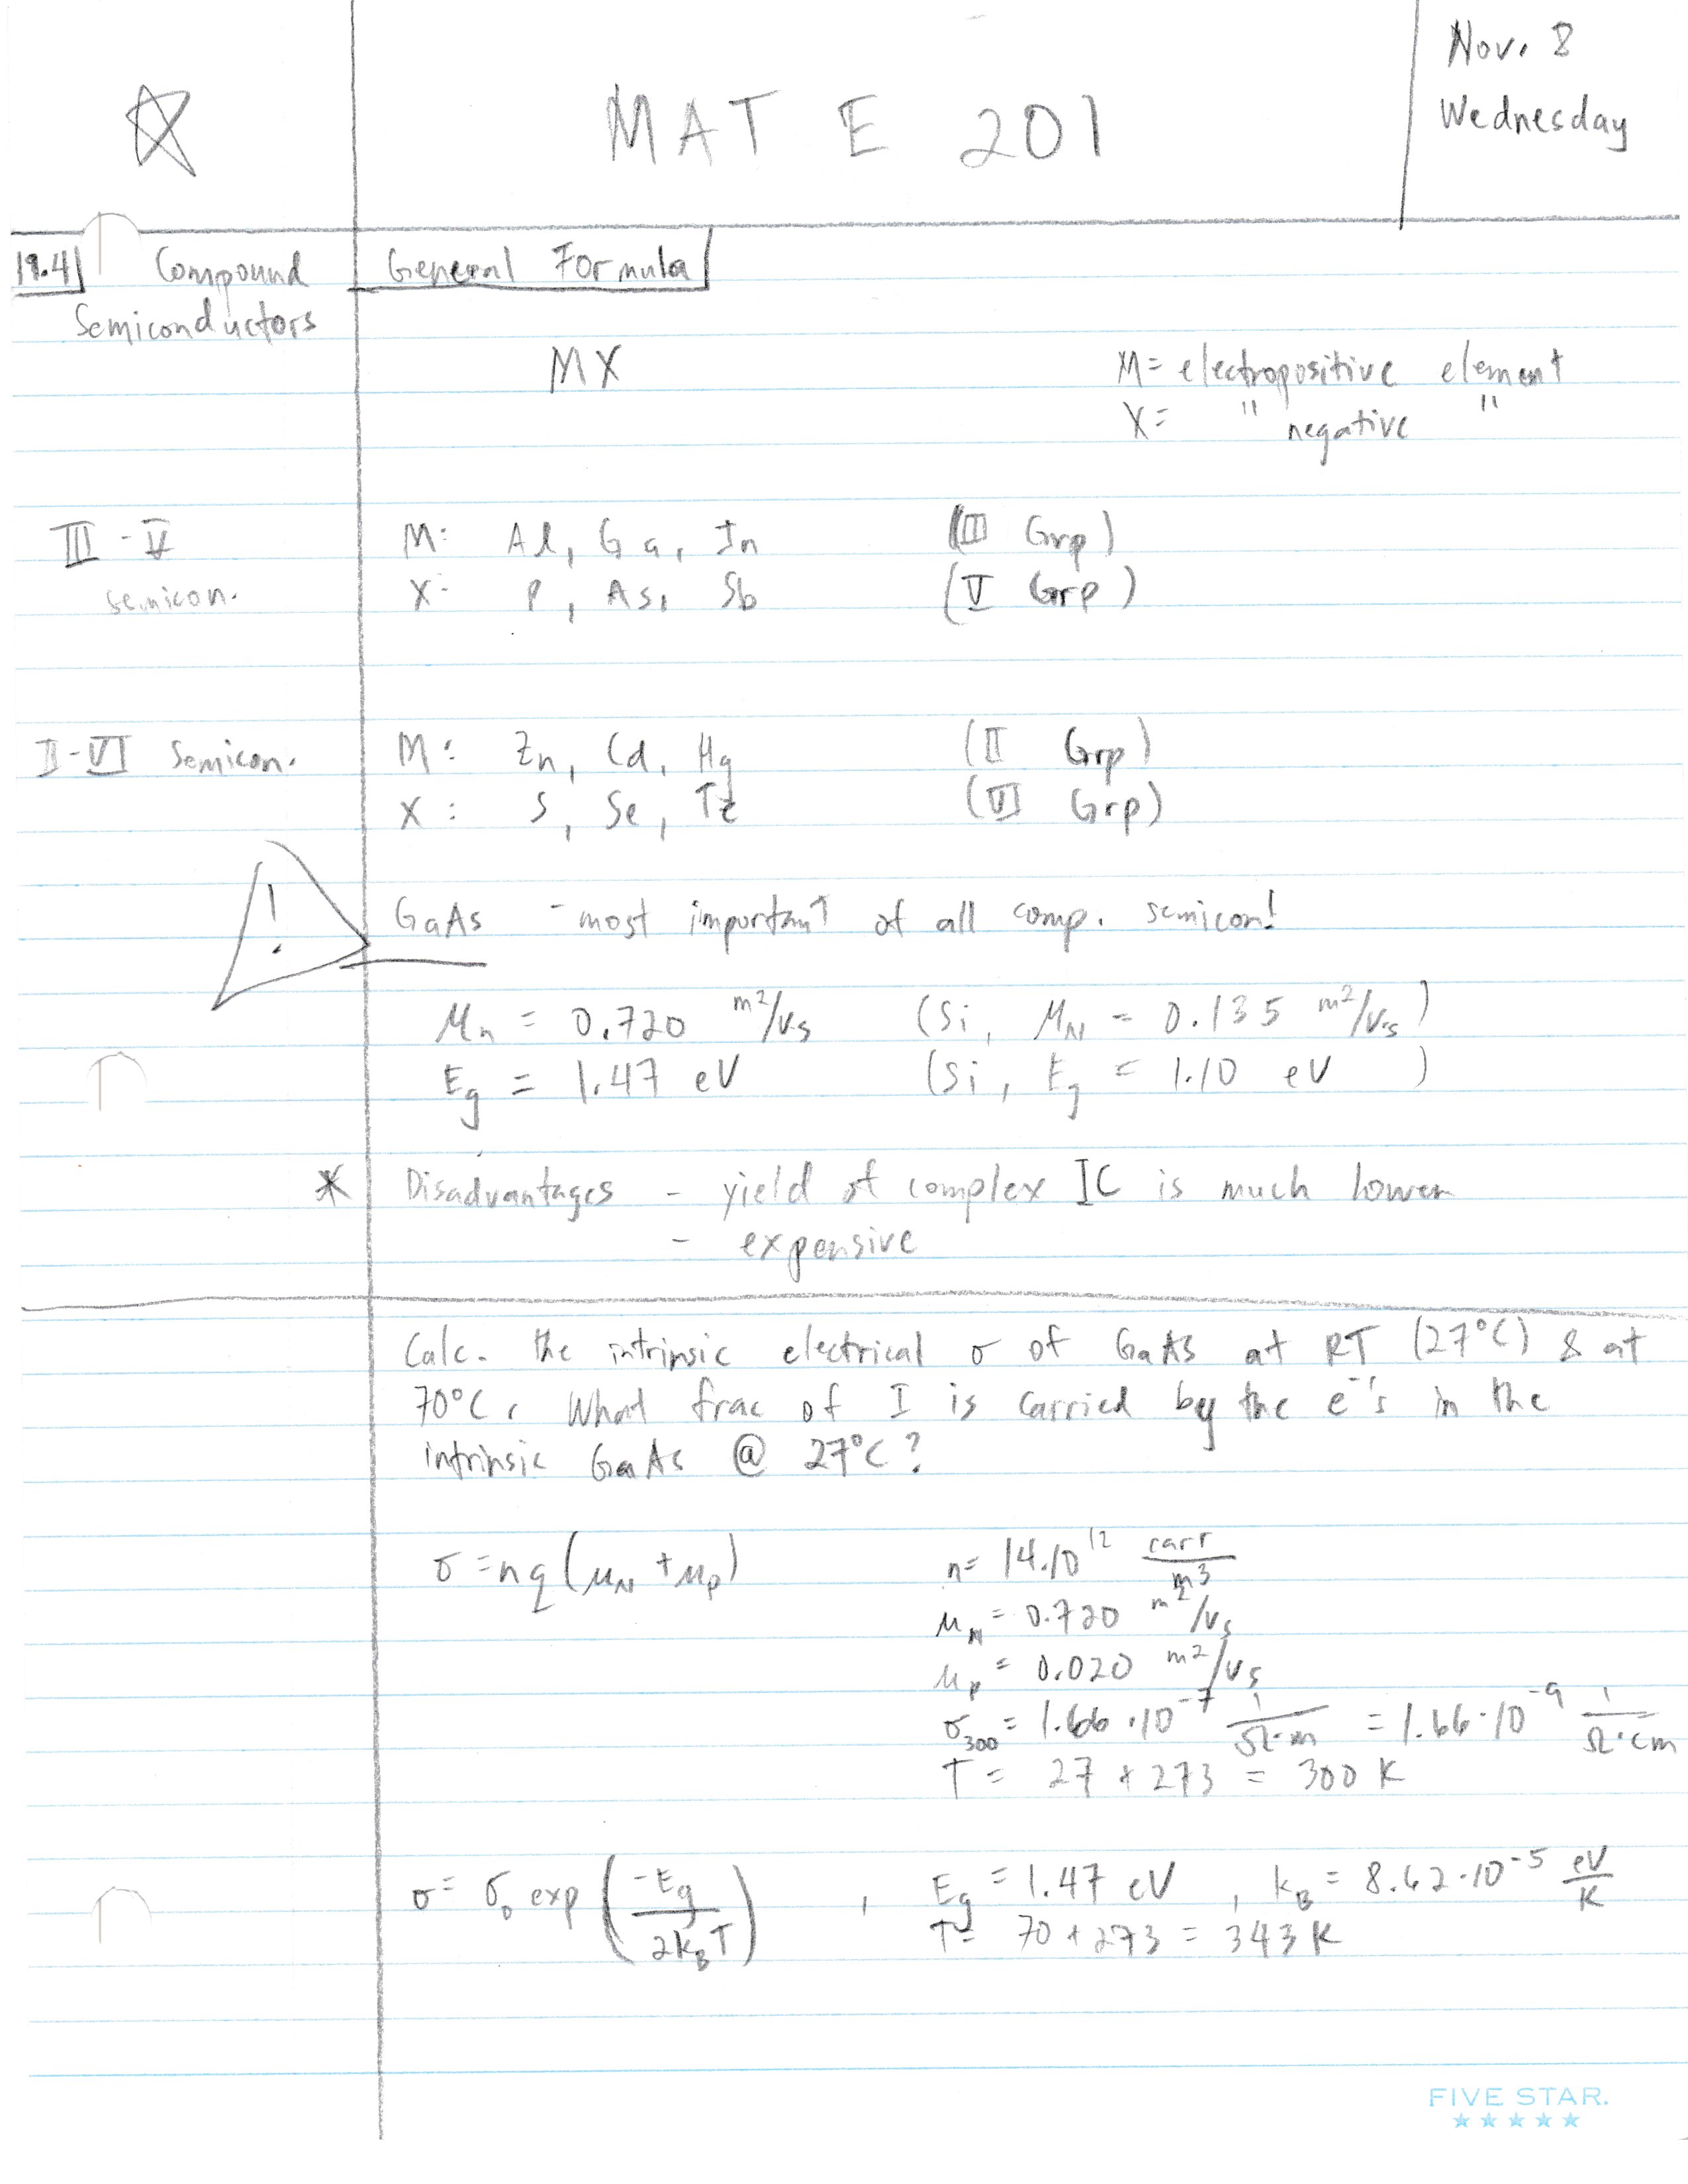 Nov. 8
Wednesday
MAT E 201
19.4 Compound Semiconductors
General Formula
MX
M = electropositive element
X = " negative "
III - V semicon.
M: Al, Ga, In (III Grp)
X: P, As, Sb (V Grp)
II-VI Semicon.
M: Zn, Cd, Hg (II Grp)
X: S, Se, Te (VI Grp)
!
GaAs - most important of all comp. semicon!
μn = 0.720 m²/Vs (Si, μN = 0.135 m²/V·s)
Eg = 1.47 eV (Si, Eg = 1.10 eV)
* Disadvantages - yield of complex IC is much lower
- expensive
Calc. the intrinsic electrical σ of GaAs at RT (27°C) & at
70°C. What frac of I is carried by the e⁻'s in the
intrinsic GaAs @ 27°C?
σ = nq(μN + μp)
n = 14·10¹² carr/m³
μN = 0.720 m²/Vs
μp = 0.020 m²/Vs
σ300 = 1.66·10⁻⁷ 1/Ω·m = 1.66·10⁻⁹ 1/Ω·cm
T = 27 + 273 = 300 K
σ = σ0 exp(-Eg/2kBT), Eg = 1.47 eV, kB = 8.62·10⁻⁵ eV/K
T = 70 + 273 = 343 K
FIVE STAR.